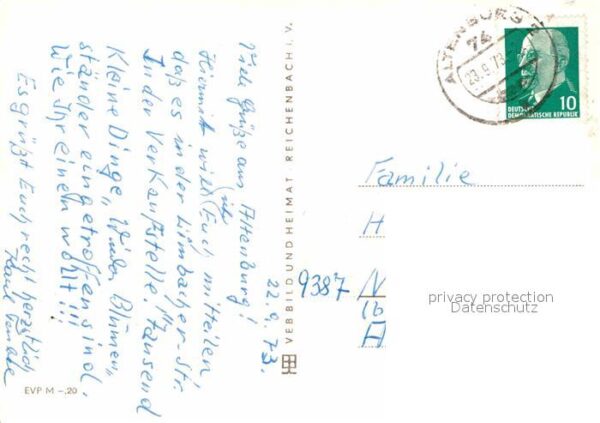 22.9.73.
Viele Grüße aus Altenburg!
Hiermit will ich Euch mitteilen,
daß es in der Limbacher-Str.
In der Verkaufstelle "Tausend
Kleine Dinge" Blumen,
ständer eingetroffen sind.
Wie Ihr einen wollt!!!
Es grüßt Euch recht herzlich
VEB BILD UND HEIMAT REICHENBACH i. V.
EVP M -,20
ALTENBURG
74
23.9.73
10
DEUTSCHE
DEMOKRATISCHE REPUBLIK
Familie
H
9387 N
16
H
privacy protection
Datenschutz